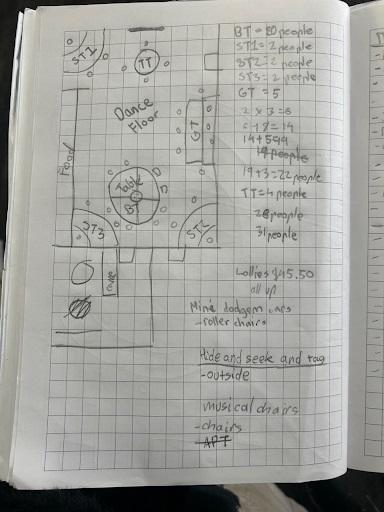 ST1
TT
Dance
Floor
GT
Food
Table
BT
ST3
ST2
BT = 10 people
ST1 = 2 people
ST2 = 2 people
ST3 = 2 people
GT = 5
2 x 3 = 6
6 + 8 = 14
14 + 5 =
19 people
19 + 3 = 22 people
TT = 4 people
people
31 people
Lollies $45.50
all up
Mini dodgem cars
- roller chairs
Hide and seek and tag
- outside
musical chairs
- chairs
- APT